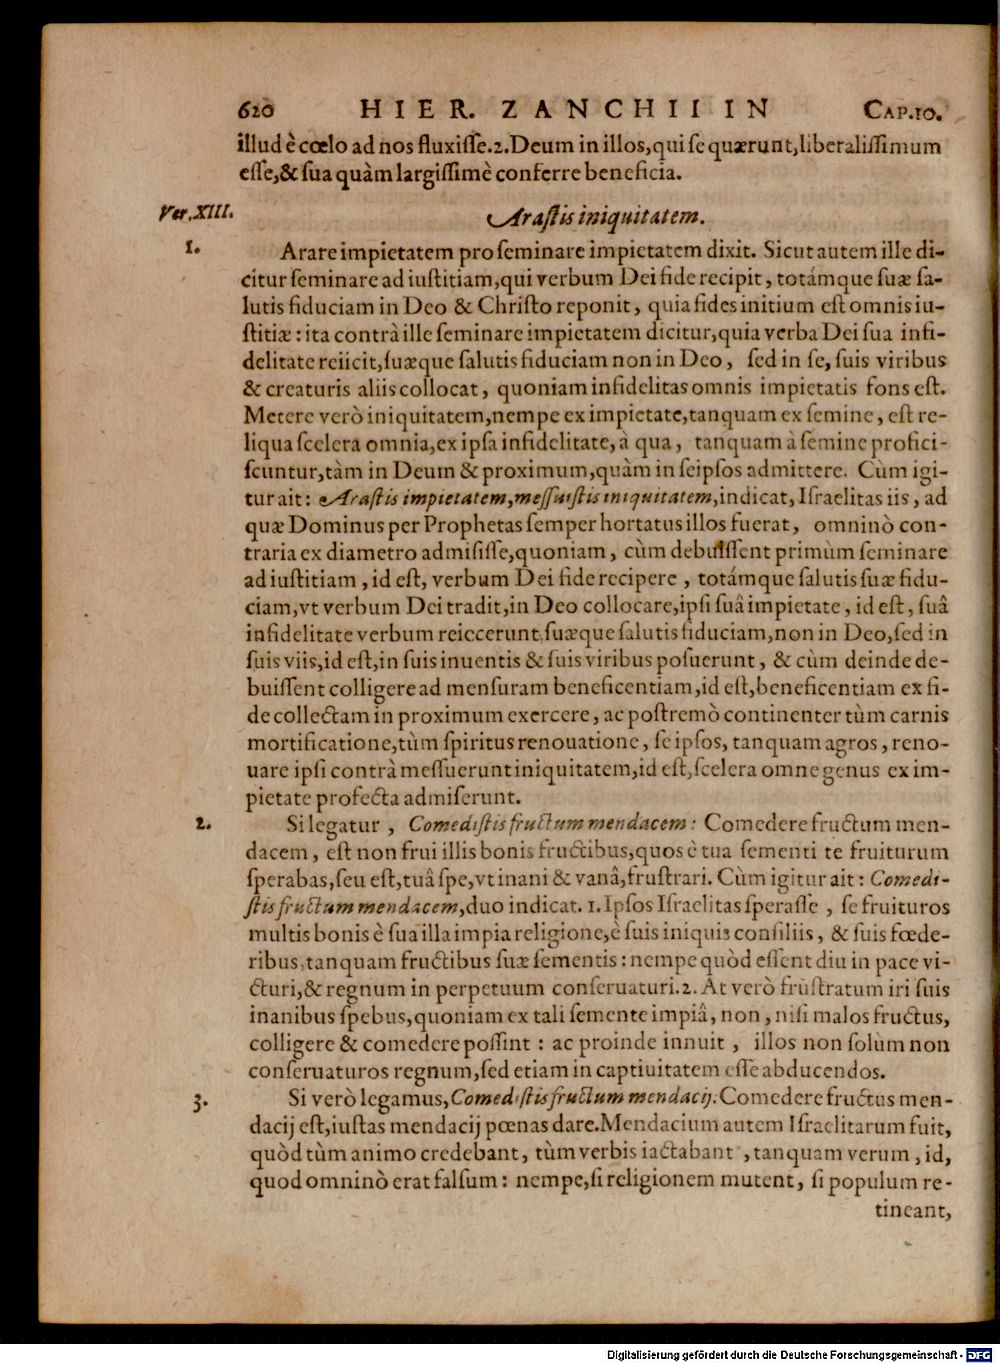 620 HIER. ZANCHII IN CAP.10.
illud è cœlo ad nos fluxiſſe.2.Deum in illos,qui ſe quærunt,liberaliſſimum
eſſe,& ſua quàm largiſſimè conferre beneficia.
Ver.XIII. Araſtis iniquitatem.
1. Arare impietatem pro ſeminare impietatem dixit. Sicut autem ille di-
citur ſeminare ad iuſtitiam,qui verbum Dei fide recipit, totámque ſuæ ſa-
lutis fiduciam in Deo & Chriſto reponit, quia fides initium eſt omnis iu-
ſtitiæ: ita contrà ille ſeminare impietatem dicitur,quia verba Dei ſua infi-
delitate reiicit,ſuæque ſalutis fiduciam non in Deo, ſed in ſe, ſuis viribus
& creaturis aliis collocat, quoniam infidelitas omnis impietatis fons eſt.
Metere verò iniquitatem,nempe ex impietate,tanquam ex ſemine, eſt re-
liqua ſcelera omnia,ex ipſa infidelitate,à qua, tanquam à ſemine profici-
ſcuntur,tàm in Deum & proximum,quàm in ſeipſos admittere. Cùm igi-
tur ait: Araſtis impietatem,meſſuiſtis iniquitatem,indicat, Iſraelitas iis, ad
quæ Dominus per Prophetas ſemper hortatus illos fuerat, omninò con-
traria ex diametro admiſiſſe,quoniam, cùm debuiſſent primùm ſeminare
ad iuſtitiam, id eſt, verbum Dei fide recipere, totámque ſalutis ſuæ fidu-
ciam,vt verbum Dei tradit,in Deo collocare,ipſi ſuâ impietate, id eſt, ſuâ
infidelitate verbum reiecerunt,ſuæque ſalutis fiduciam,non in Deo,ſed in
ſuis viis,id eſt,in ſuis inuentis & ſuis viribus poſuerunt, & cùm deinde de-
buiſſent colligere ad menſuram beneficentiam,id eſt,beneficentiam ex fi-
de collectam in proximum exercere, ac poſtremò continenter tùm carnis
mortificatione,tùm ſpiritus renouatione, ſe ipſos, tanquam agros, reno-
uare ipſi contrà meſſuerunt iniquitatem,id eſt,ſcelera omne genus ex im-
pietate profecta admiſerunt.
2. Si legatur, Comediſtis fructum mendacem: Comedere fructum men-
dacem, eſt non frui illis bonis fructibus,quos è tua ſementi te fruiturum
ſperabas,ſeu eſt,tuâ ſpe,vt inani & vanâ,fruſtrari. Cùm igitur ait: Comedi-
ſtis fructum mendacem,duo indicat. 1. Ipſos Iſraelitas ſperaſſe, ſe fruituros
multis bonis è ſua illa impia religione,è ſuis iniquis conſiliis, & ſuis fœde-
ribus,tanquam fructibus ſuæ ſementis: nempe quòd eſſent diu in pace vi-
cturi,& regnum in perpetuum conſeruaturi.2. At verò fruſtratum iri ſuis
inanibus ſpebus,quoniam ex tali ſemente impiâ, non, niſi malos fructus,
colligere & comedere poſſint: ac proinde innuit, illos non ſolùm non
conſeruaturos regnum,ſed etiam in captiuitatem eſſe abducendos.
3. Si verò legamus,Comediſtis fructum mendacij.Comedere fructus men-
dacij eſt,iuſtas mendacij pœnas dare.Mendacium autem Iſraelitarum fuit,
quòd tùm animo credebant, tùm verbis iactabant, tanquam verum, id,
quod omninò erat falſum: nempe,ſi religionem mutent, ſi populum re-
tineant,
Digitalisierung gefördert durch die Deutsche Forschungsgemeinschaft - DFG